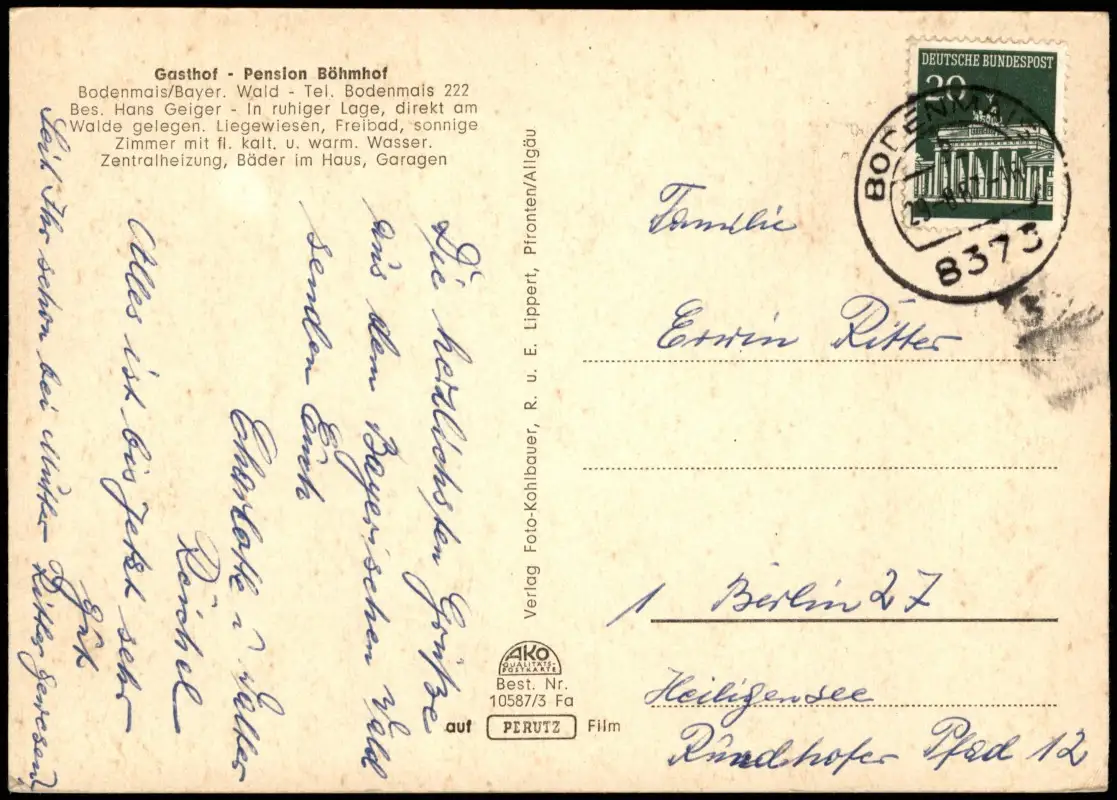 Gasthof - Pension Böhmhof
Bodenmais/Bayer. Wald - Tel. Bodenmais 222
Bes. Hans Geiger - In ruhiger Lage, direkt am
Walde gelegen. Liegewiesen, Freibad, sonnige
Zimmer mit fl. kalt. u. warm. Wasser.
Zentralheizung, Bäder im Haus, Garagen
Die herzlichsten Grüße
aus dem Bayerischen Wald
senden Euch
Charlotte u Walter
Röschel
Alles ist bis jetzt sehr
gut
Seid Ihr schon bei Mutter Ritter gewesen
Verlag Foto-Kohlbauer, R. u. E. Lippert, Pfronten/Allgäu
AKO
QUALITÄTS-
POSTKARTE
Best. Nr.
10587/3 Fa
auf PERUTZ Film
DEUTSCHE BUNDESPOST
20
BODENMAIS
29.-8.67-
8373
Familie
Erwin Ritter
1 Berlin 27
Heiligensee
Rundhofer Pfad 12